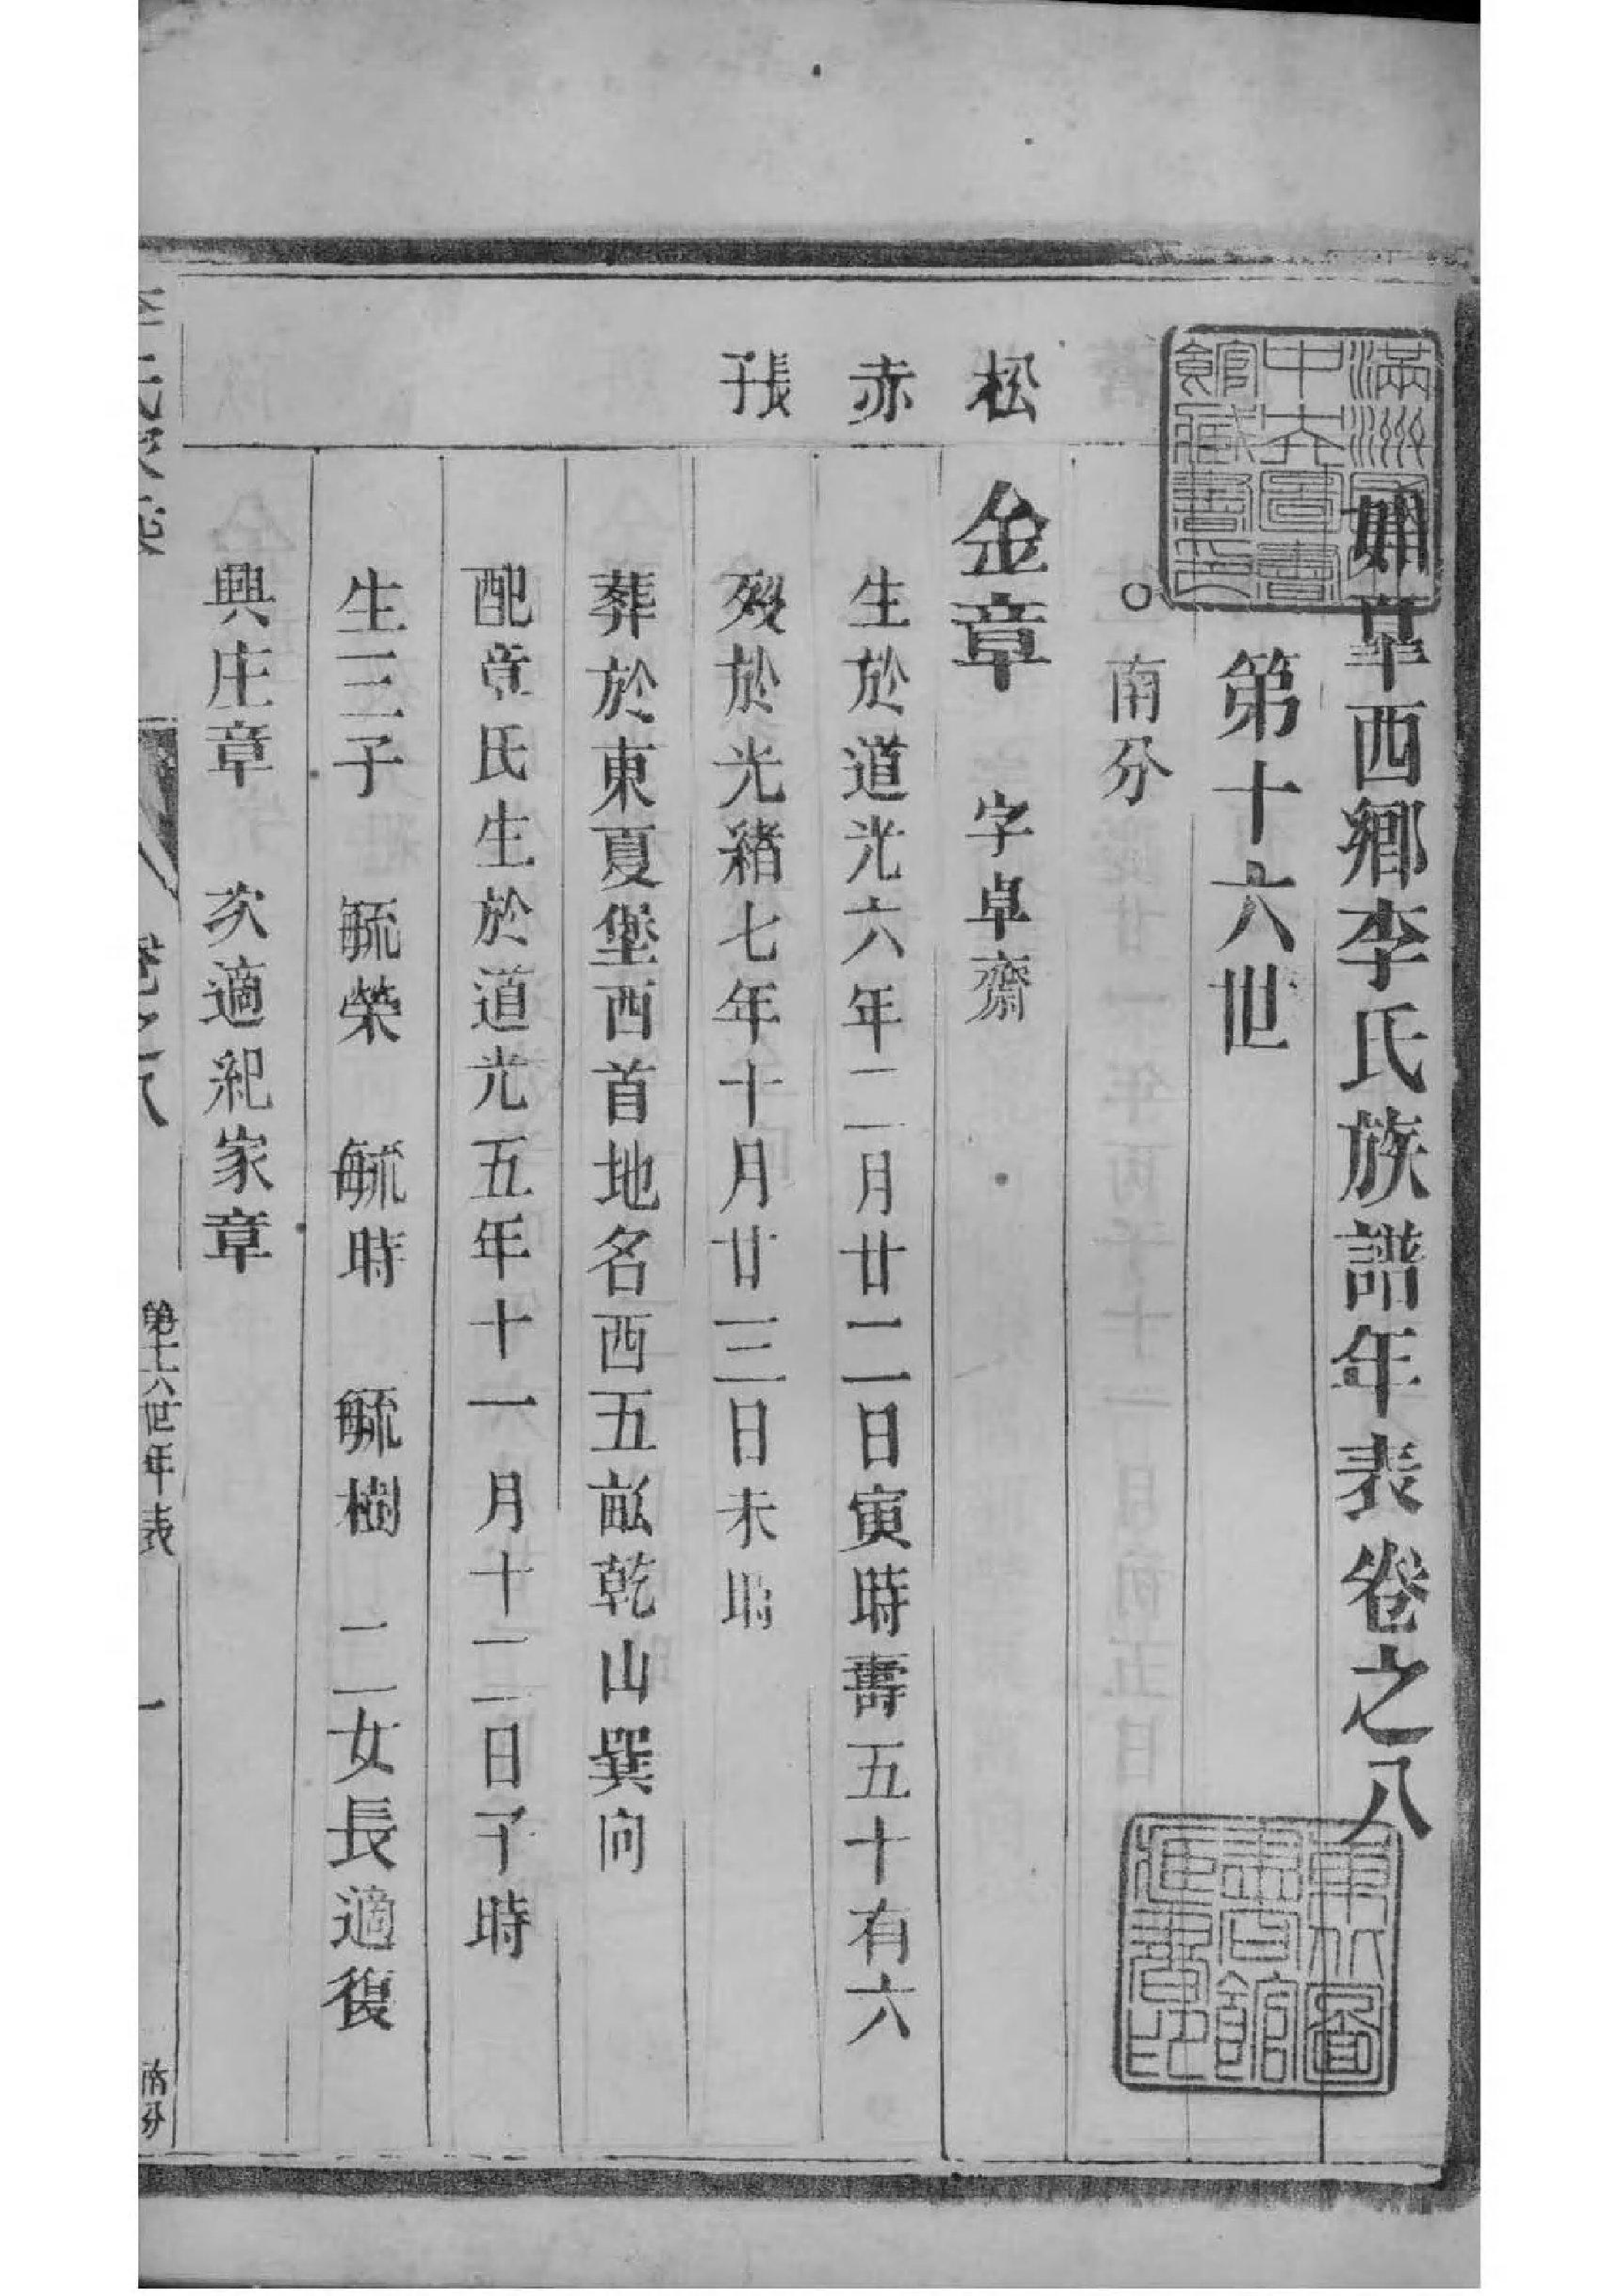 如皋西鄉李氏族譜年表卷之八
滿洲國
中央圖書
館藏書印
東北圖
書館
藏書印
第十六世
○南分
松 金章 字卓齋
赤 生於道光六年二月廿二日寅時壽五十有六
張子 歿於光緒七年十月廿三日未時
葬於東夏堡西首地名西五畝乾山巽向
配章氏生於道光五年十一月十二日子時
生三子 毓榮 毓時 毓樹 二女長適復
興庄章 次適紀家章
卷之八 第十六世年表 一 南分